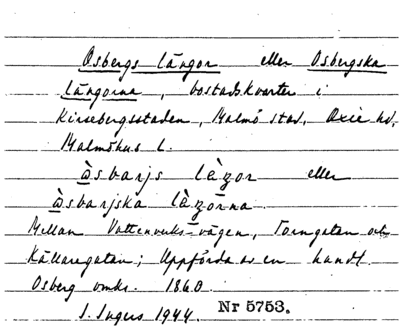 Osbergs längor eller Osbergska
längorna, bostadskvarter i
Kirsebergsstaden, Malmö stad, Oxie hd,
Malmöhus l.
òsbarjs làŋor eller
òsbarjska làŋorna
Mellan Vattenverksvägen, Torngatan och
Källaregatan; Uppförda av en handl.
Osberg omkr. 1860.
I. Ingers 1944. Nr 5753.